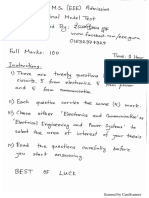 M.Sc (EEE) Admission
Final Model Test
By:
Full Marks: 100
Time: 1 Hour
Instructions:
There are twenty questions
circuit, 5 from electronics, 5 from
and 5 from communication
Each question carries the same (5) mark.
Chose either "Electronics and Communication" or
"Electrical Engineering and Power Systems" to
select the area of interest of your thesis
Read the questions carefully before
you start answering.
BEST OF LUCK
Scanned by CamScanner